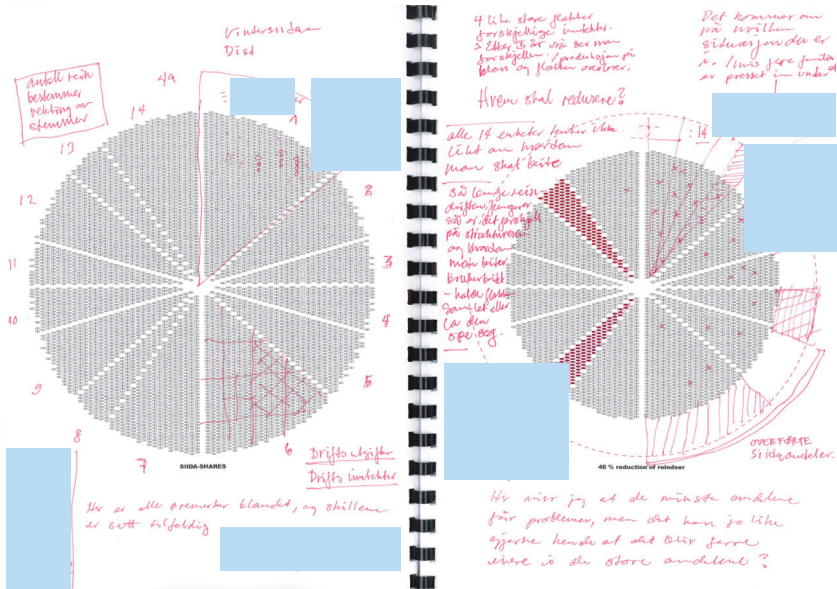 Vintersiidaen
antall rein
bestemmer
vekting av
stemmer
49
14
13
12
11
10
9
8
7
1
2
3
4
5
6
SIIDA-SHARES
Driftsutgifter
Driftsinntekter
Her er alle øremerker blandet, og skillene
er satt tilfeldig
4 like store flokker
forskjellige inntekter.
> Etter 3 år vil ser man
forskjellen. / produksjon på
og flokken
Det kommer an
på hvilken
situasjon du er
i. / hvis flere familier
er presset inn under
Hvem skal redusere?
alle 14 enheter tenker ikke
likt om hvordan
man skal beite
14
Så lenge rein-
driften fungerer
så er det forskjell
på strukturene
og hvordan
man beiter
- holde flokken
samlet eller
la den
spre seg.
OVERFØRTE
Siidaandeler.
40 % reduction of reindeer
Her viser jeg at de minste andelene
får problemer, men det kan jo like
gjerne hende at det blir færre
eiere i de store andelene?